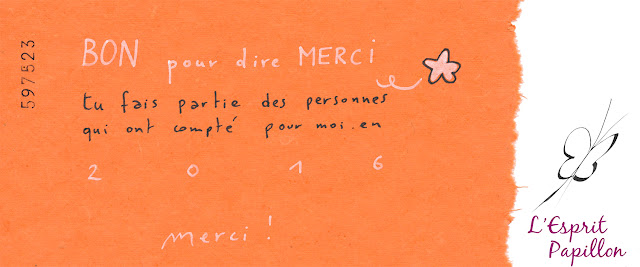 597523
BON pour dire MERCi
tu fais partie des personnes
qui ont compté pour moi.en
2 0 1 6
merci !
L'Esprit
Papillon